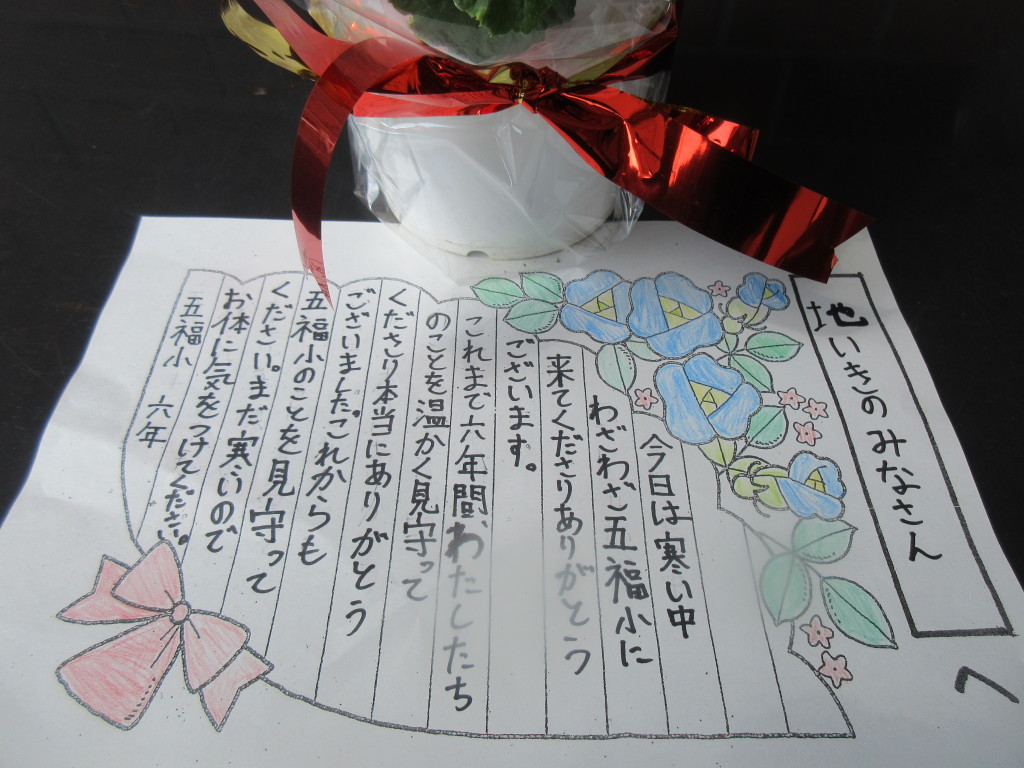 地いきのみなさん
へ
今日は寒い中
わざわざ五福小に
来てくださりありがとう
ございます。
これまで六年間、わたしたち
のことを温かく見守って
くださり本当にありがとう
ございました。これからも
五福小のことを見守って
ください。まだ寒いので
お体に気をつけてください。
五福小 六年